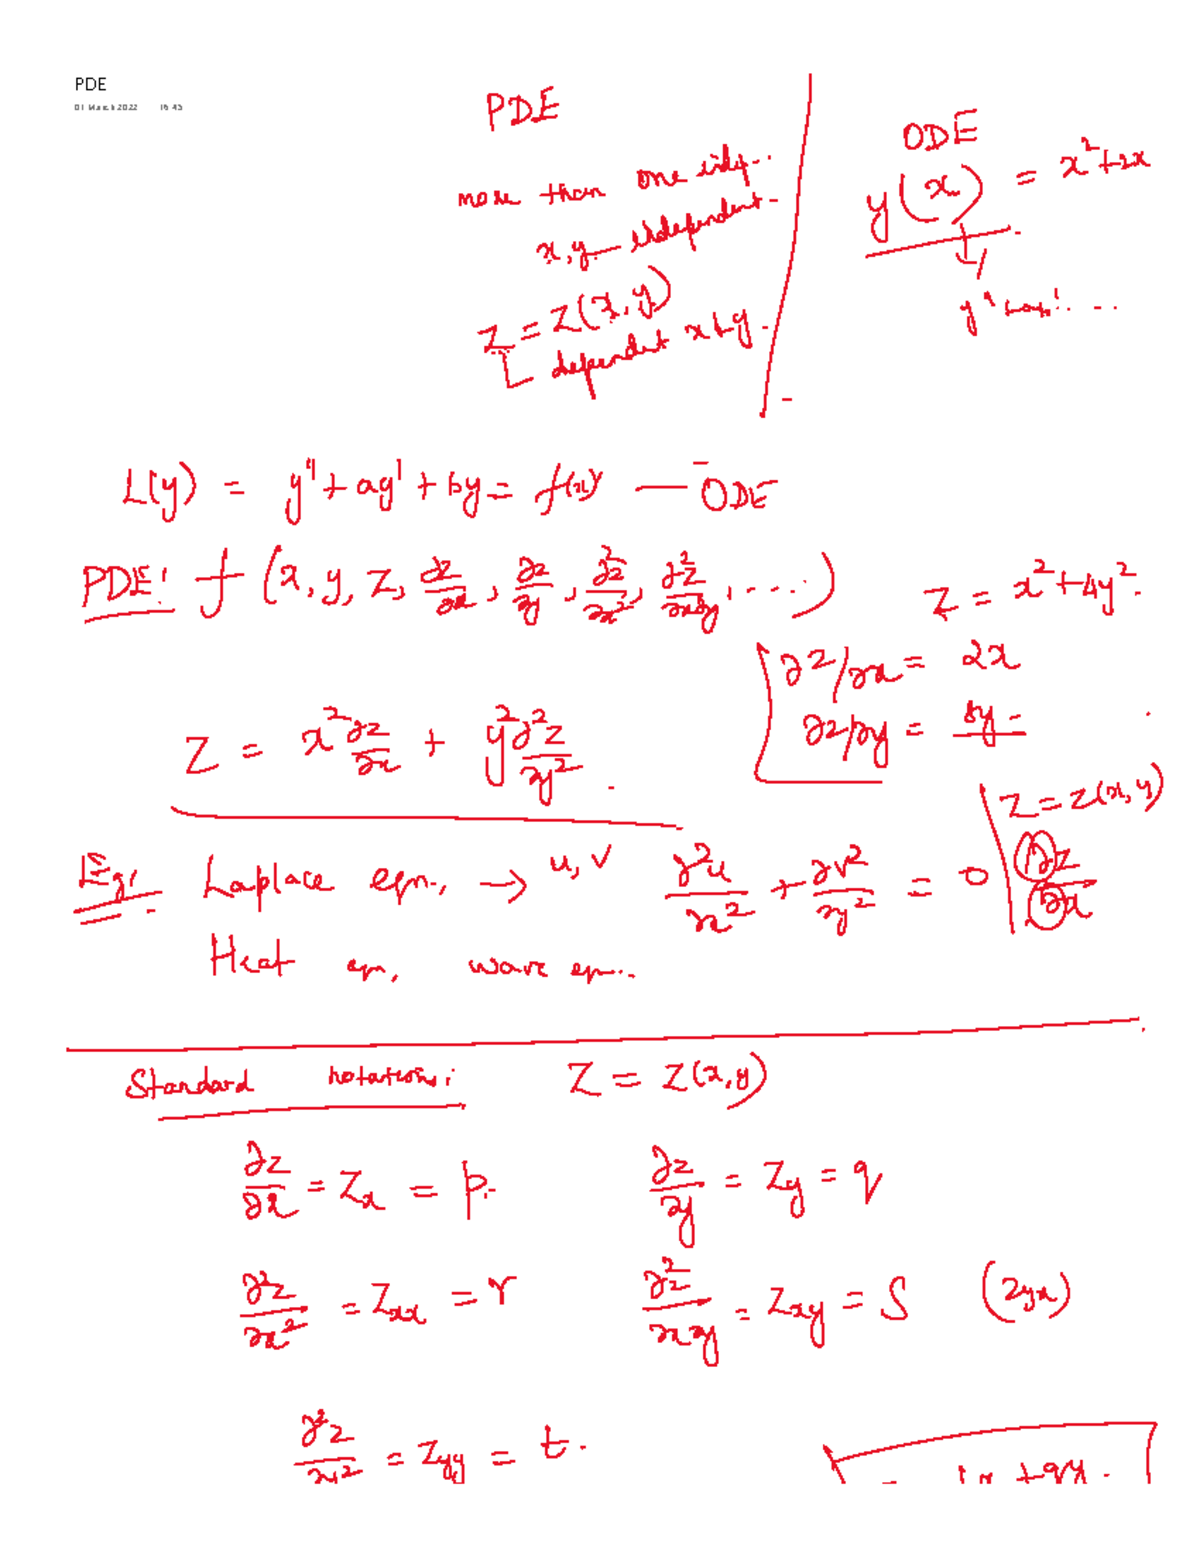 PDE
01 March 2022 15:43
PDE
more than one indp..
x, y — independent.
z = z(x, y)
dependent x & y.
ODE
y(x) = x² + 2x
L(y) = y'' + ay' + by = f(x) — ODE
PDE: f(x, y, z, ∂z/∂x, ∂z/∂y, ∂²z/∂x², ∂²z/∂x∂y, ....)
z = x² + 4y².
∂z/∂x = 2x
∂z/∂y = 8y
z = x² ∂z/∂x + y² ∂²z/∂y².
z = z(x, y)
∂z/∂x
Eg: Laplace eqn., → u, v ∂²u/∂x² + ∂v²/∂y² = 0
Heat eqn, wave eqn..
Standard notations: z = z(x, y)
∂z/∂x = Zx = p. ∂z/∂y = Zy = q
∂²z/∂x² = Zxx = r ∂²z/∂x∂y = Zxy = S (Zyx)
∂²z/∂y² = Zyy = t.